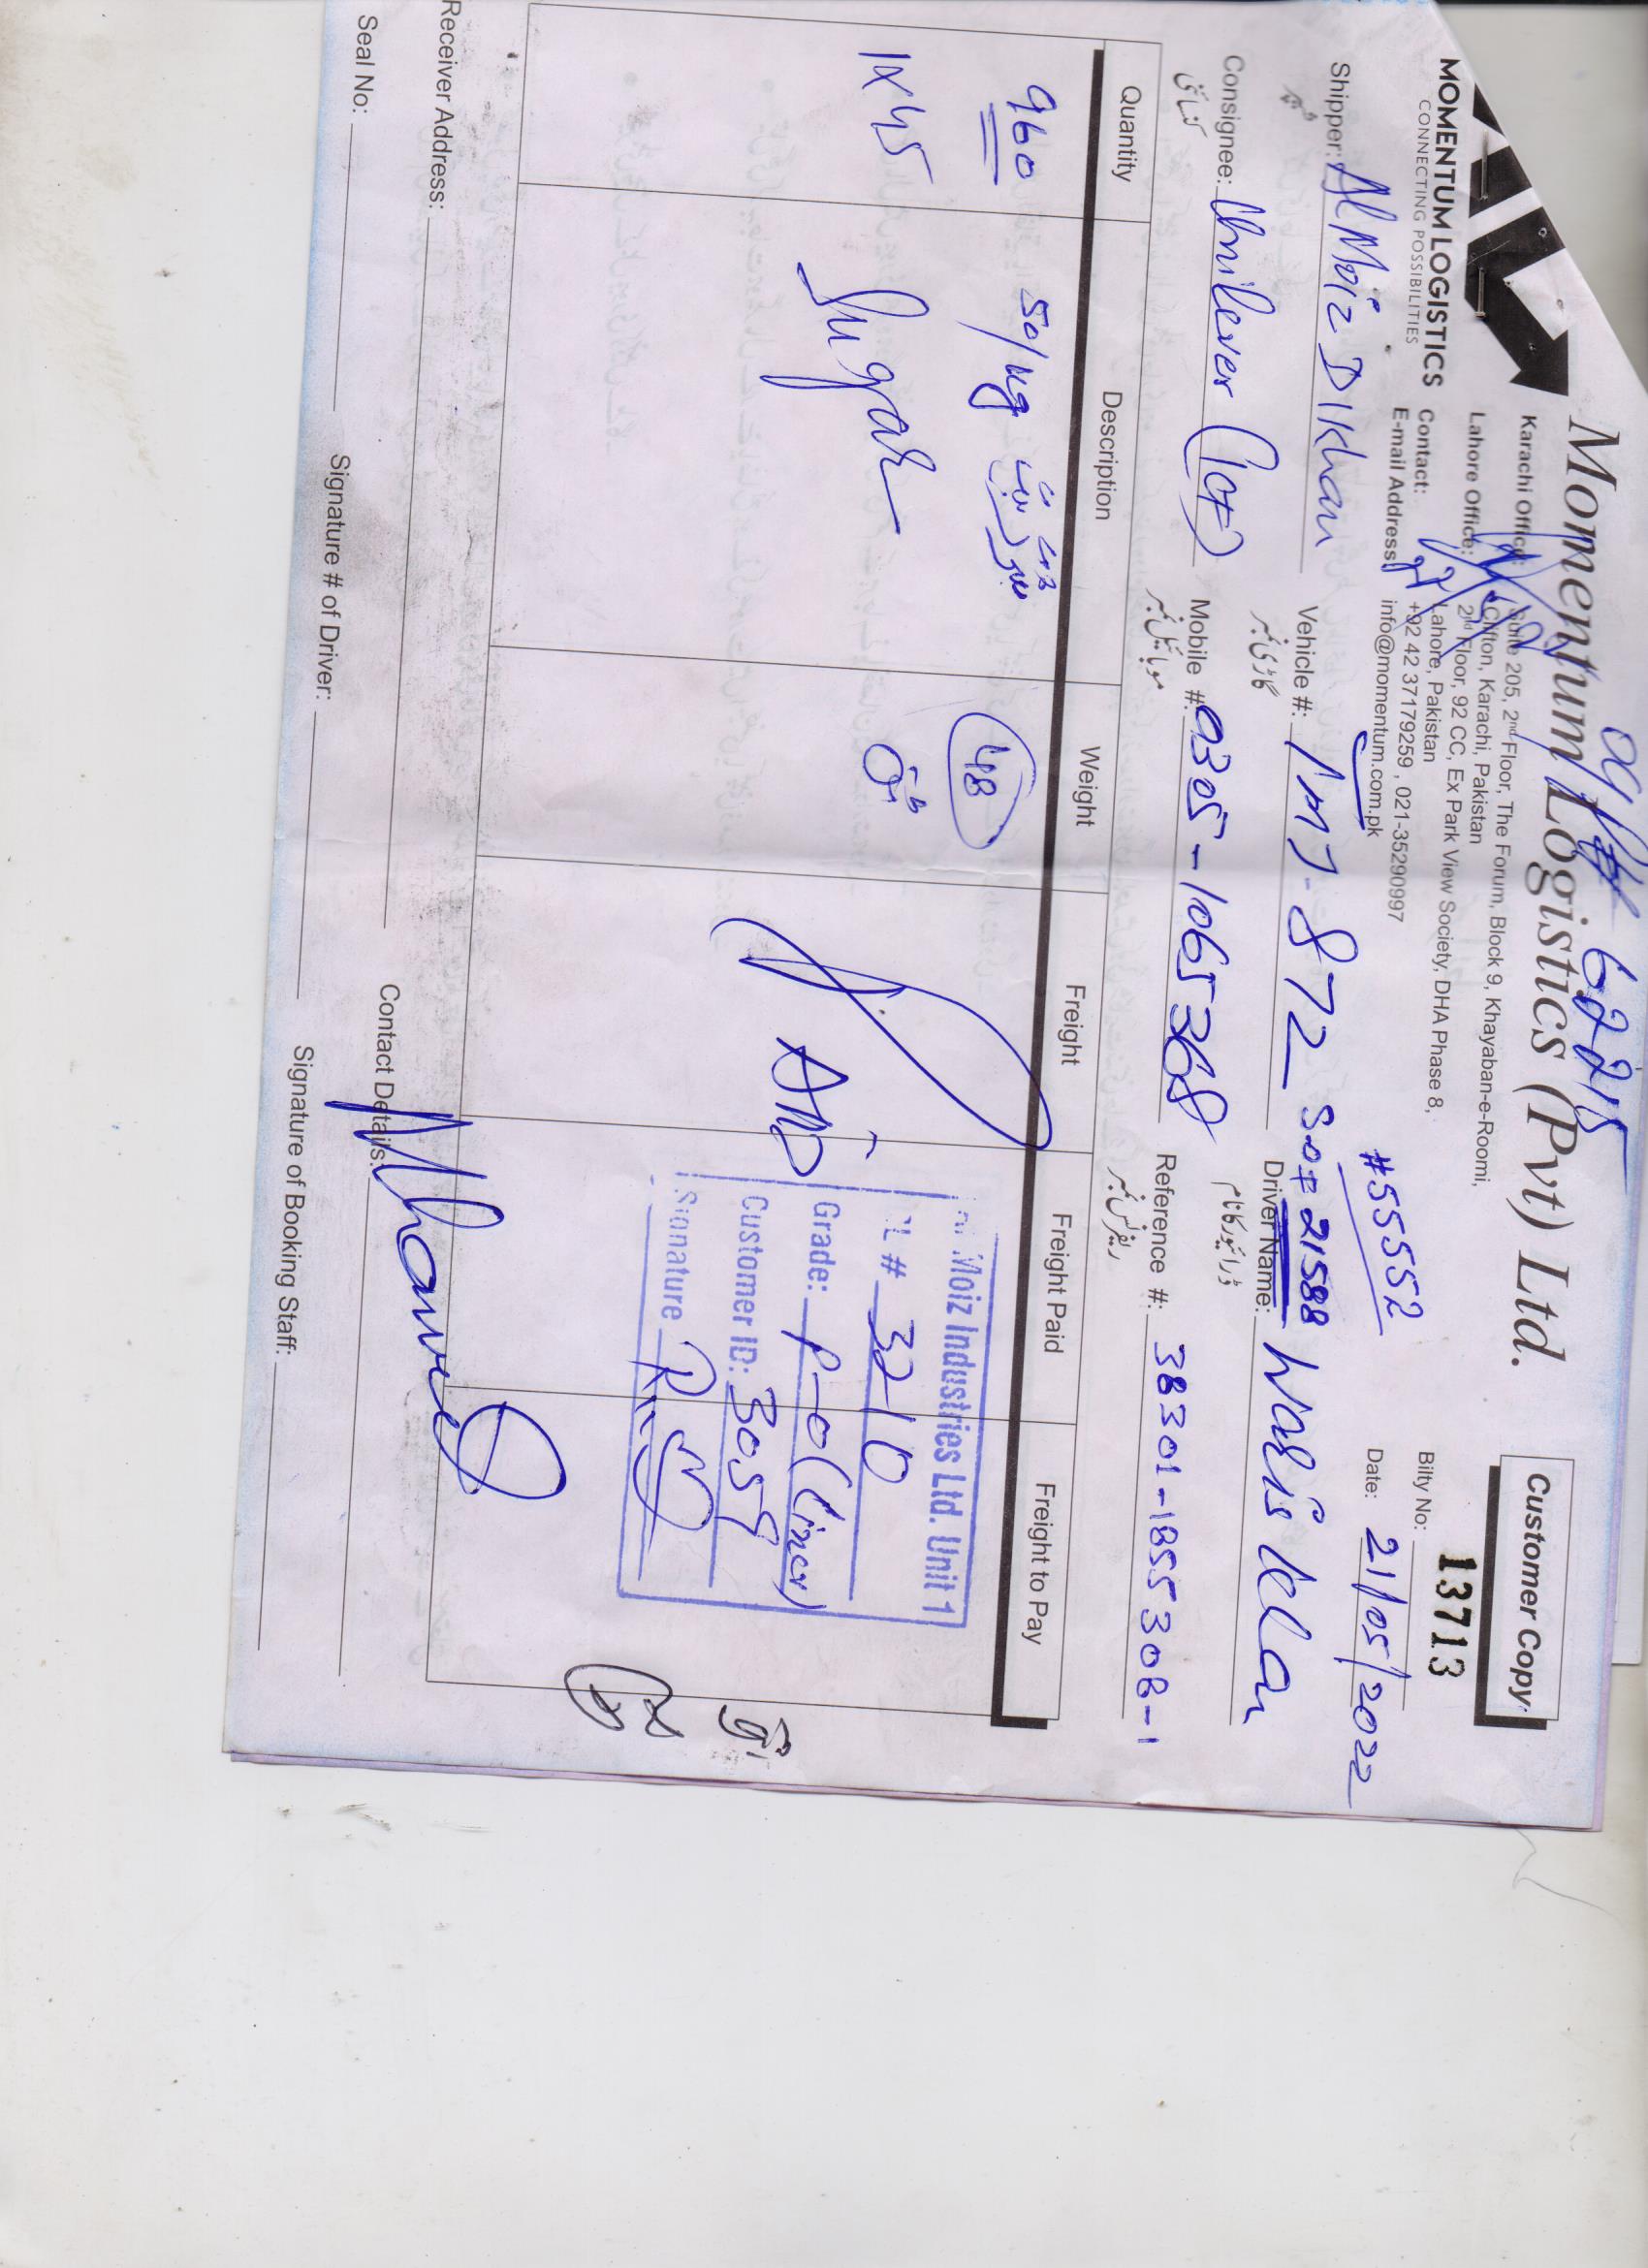 Customer Copy
Momentum Logistics (Pvt) Ltd.
62215
MOMENTUM LOGISTICS
CONNECTING POSSIBILITIES
Karachi Office: Suite 205, 2nd Floor, The Forum, Block 9, Khayaban-e-Roomi,
Clifton, Karachi, Pakistan
Lahore Office: 2nd Floor, 92 CC, Ex Park View Society, DHA Phase 8,
Lahore, Pakistan
Contact: +92 42 37179259 , 021-35290997
E-mail Address: info@momentum.com.pk
Bilty No: 13713
#55552
Date: 21/05/2022
Shipper: Al Moiz DIKhan
Vehicle #: 872
گاڑی نمبر
21588
Driver Name:
ڈرائیور کا نام
Consignee: Unilever
Mobile #: 0305-1065368
موبائل نمبر
Reference #: 38301-1855308-1
ریفرنس نمبر
Quantity Description Weight Freight Freight Paid Freight to Pay
960 50/kg 48
1x45 Sugar ٹن
Moiz Industries Ltd. Unit 1
# 3210
Grade: P-0 (Liner)
Customer ID: 3059
Signature
Receiver Address:
Contact Details:
Seal No:
Signature # of Driver:
Signature of Booking Staff: